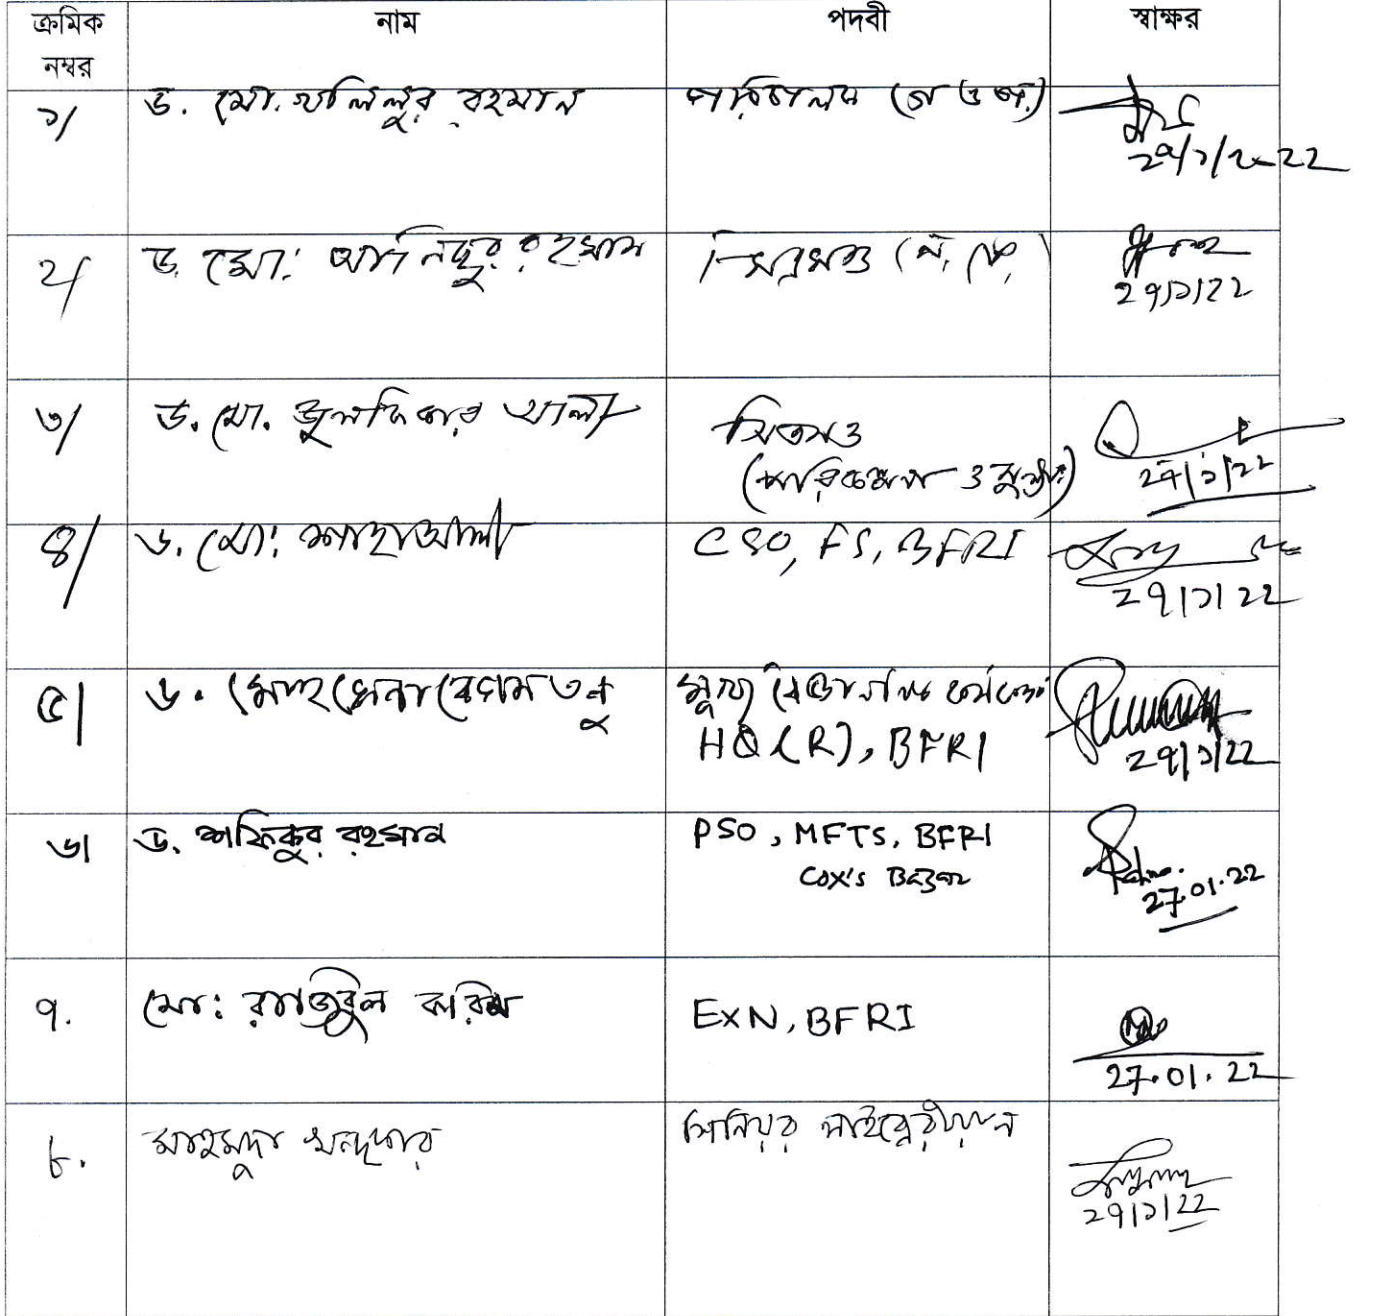 ক্রমিক নম্বর নাম পদবী স্বাক্ষর
১/ ড. মো. খলিলুর রহমান পরিচালক (প্র ও অ.)
২৭/১/২০২২
২/ ড. মো: আনিছুর রহমান
২৭/১/২২
৩/ ড. মো. জুলফিকার আলী সিএসও
(পরিকল্পনা ও মূল্যা:)
২৭/১/২২
৪/ ড. মো: শাহাআলী CSO, FS, BFRI
২৭/১/২২
৫/ ড. মোহসেনা বেগম তনু মুখ্য বৈজ্ঞানিক কর্মকর্তা
HQ (R), BFRI
২৭/১/২২
৬/ ড. শফিকুর রহমান PSO, MFTS, BFRI
Cox's Bazar
27.01.22
৭. মো: রাজিবুল করিম ExN, BFRI
27.01.22
৮. মাহমুদা খন্দকার সিনিয়র লাইব্রেরীয়ান
২৭/১/২২